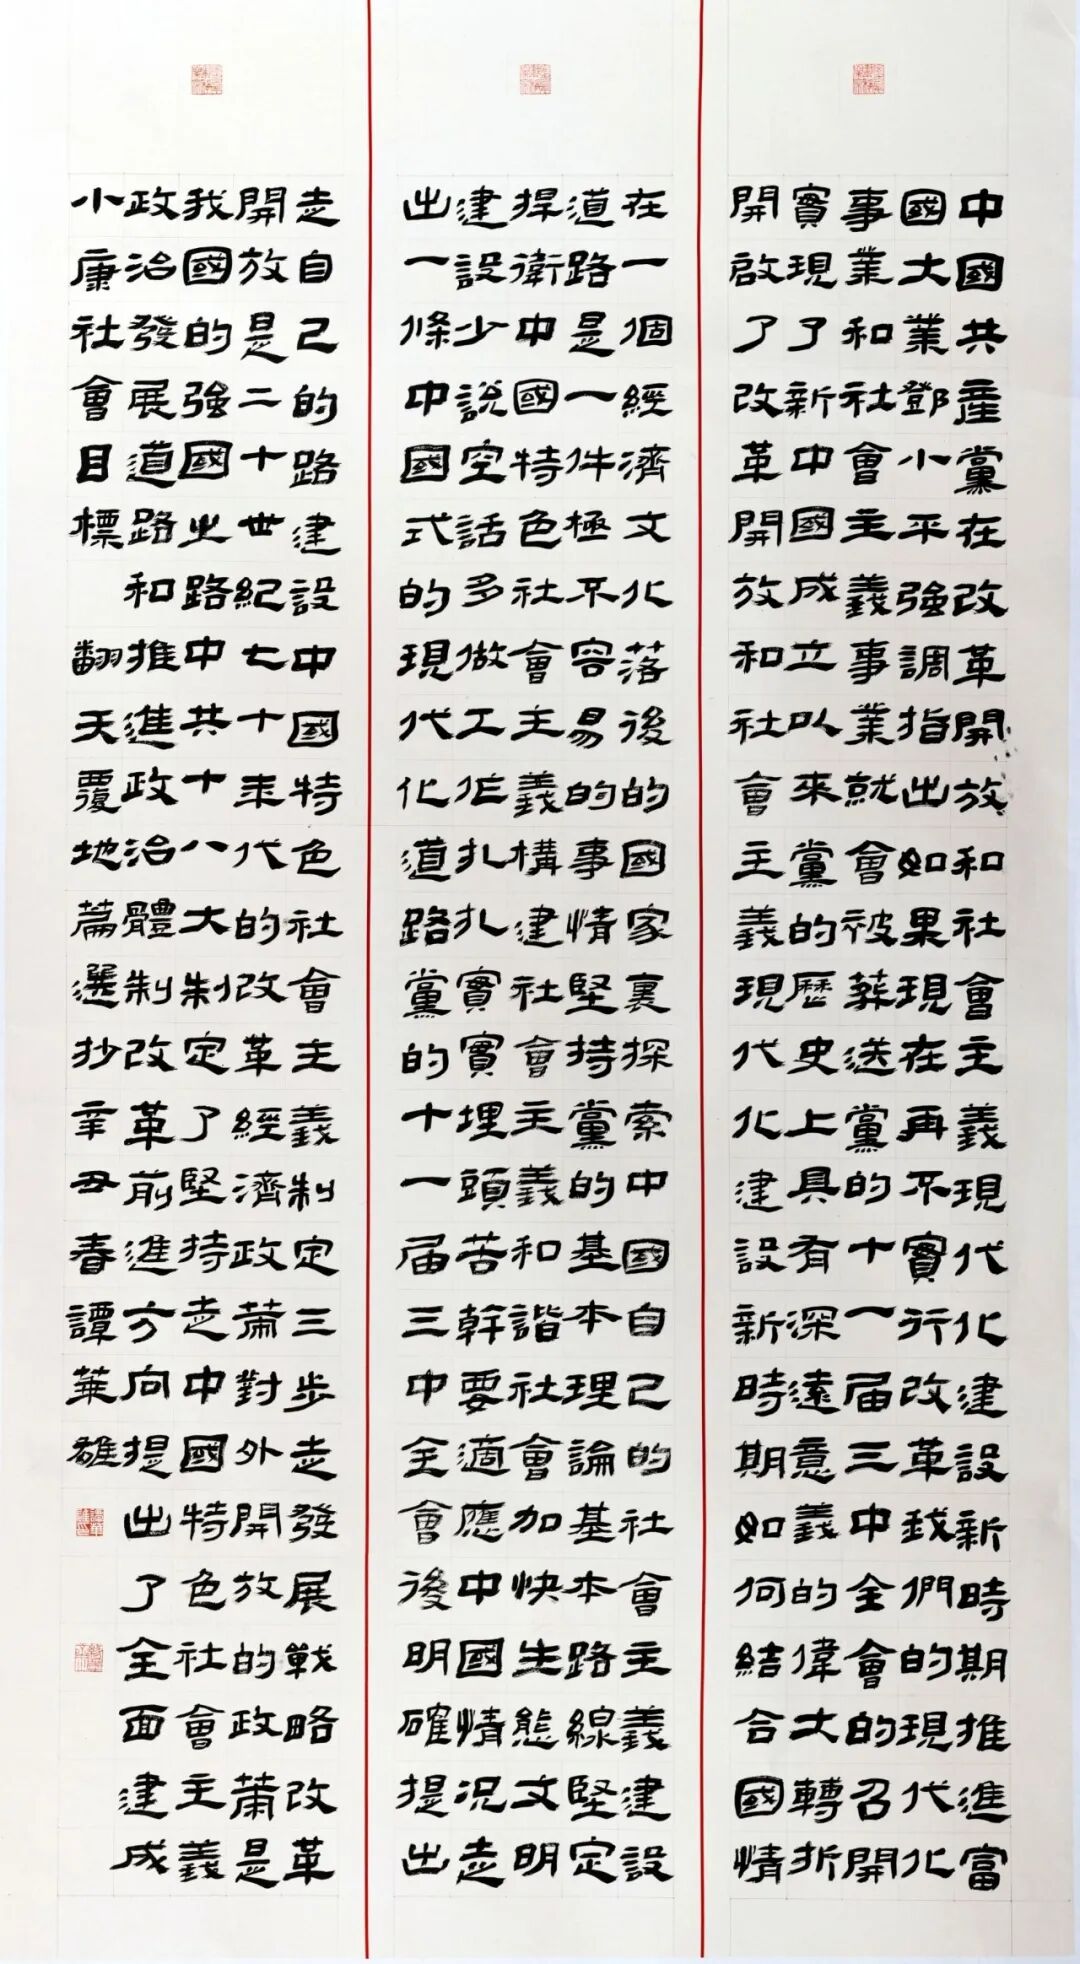 中國共產黨在改革開放和社會主義現代化建設新時期推進富
國大業鄧小平強調指出如果現在再不實行改革我們的現代化
事業和社會主義事業就會被葬送黨的十一届三中全會的召開
實現了新中國成立以來黨的歷史上具有深遠意義的偉大轉折
開啟了改革開放和社會主義現代化建設新時期如何結合國情
在一個經濟文化落後的國家裏探索中國自己的社會主義建設
道路是一件極不容易的事情堅持黨的基本理論基本路線堅定
捍衛中國特色社會主義構建社會主義和諧社會加快生態文明
建設少說空話多做工作扎扎實實埋頭苦幹要適應中國情況走
出一條中國式的現代化道路黨的十一届三中全會後明確提出
走自己的路建設中國特色社會主義制定三步走發展戰略改革
開放是二十世紀七十年代的改革經濟政策對外開放的政策是
我國的強國之路中共十八大制定了堅持走中國特色社會主義
政治發展道路和推進政治體制改革前進方向提出了全面建成
小康社會目標 翻天覆地篇選抄辛丑春譚華雄